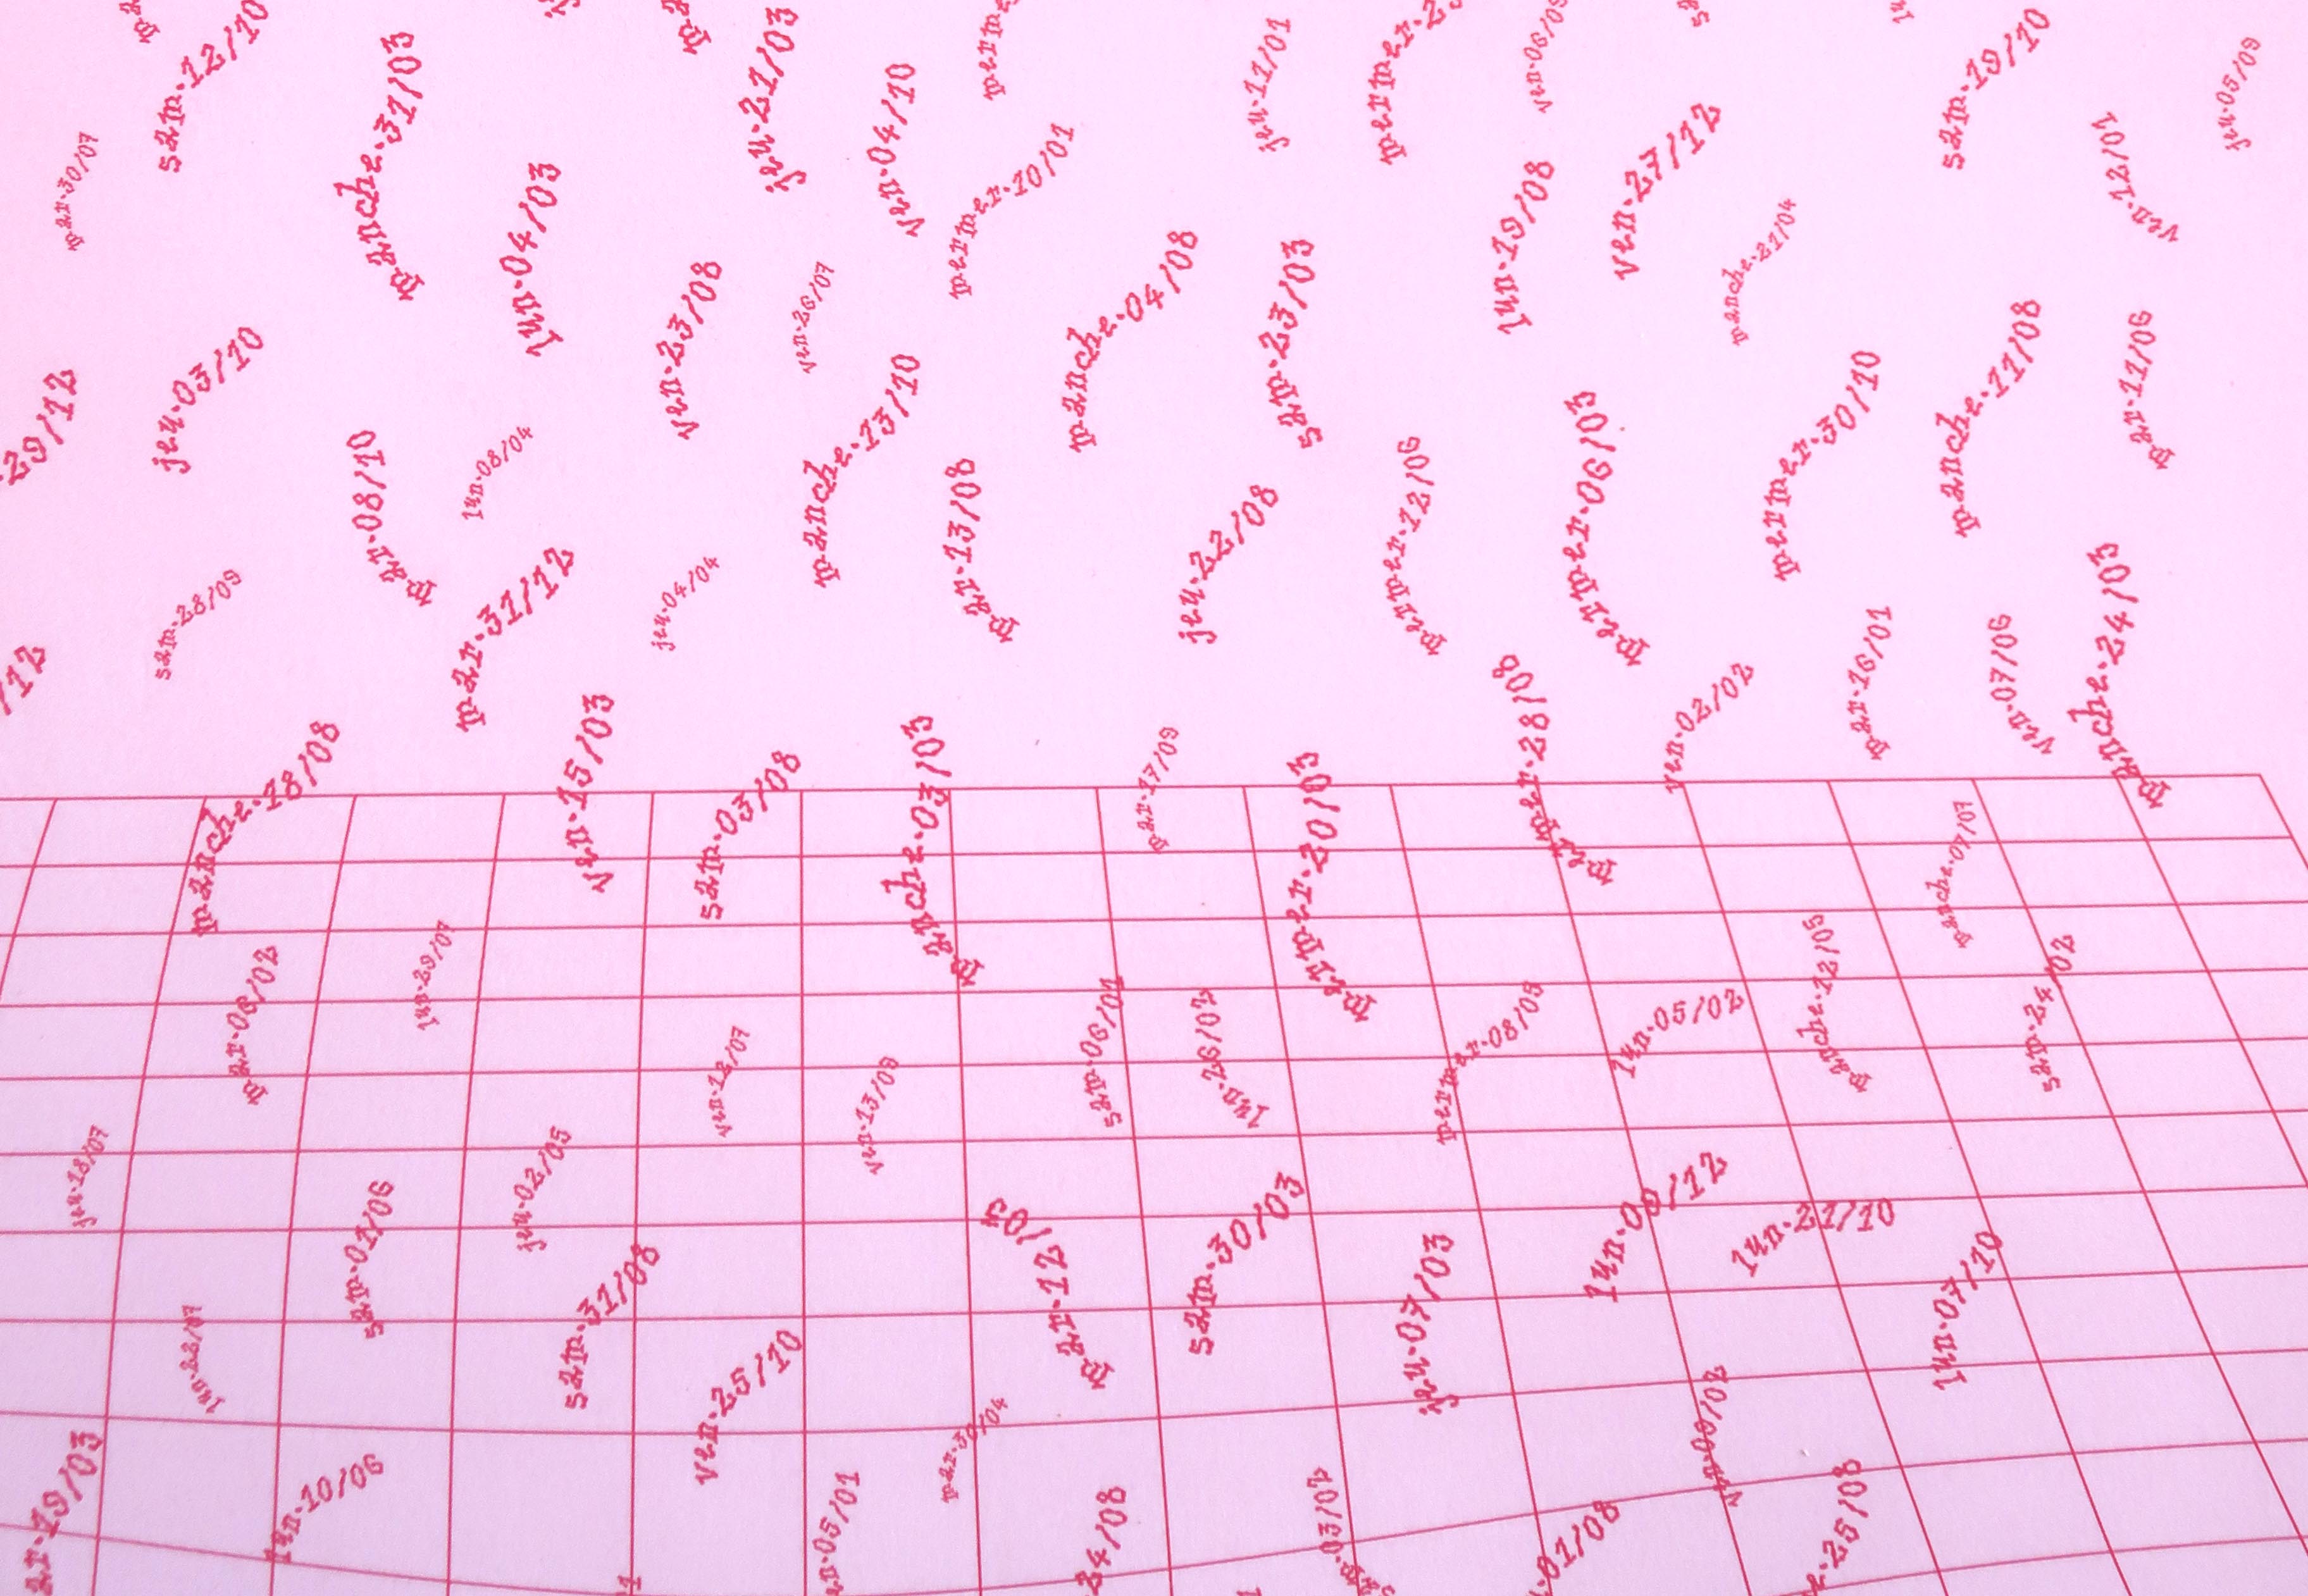 sam.12/10
manche.31/03
jeu.21/03
ven.04/10
jeu.11/01
ven.06/09
sam.19/10
jeu.05/09
mar.30/07
lun.04/03
mermer.10/01
lun.19/08
ven.27/12
ven.12/01
manche.21/04
manche.04/08
sam.23/03
ven.23/08
ven.26/07
jeu.03/10
29/12
manche.13/10
manche.11/08
mar.11/06
mermer.30/10
mermer.06/03
mermer.12/06
mar.08/10
lun.08/04
mar.13/08
jeu.22/08
sam.28/09
mar.31/12
jeu.04/04
/12
mar.16/01
ven.07/06
manche.24/03
manche.18/08
ven.15/03
sam.03/08
manche.03/03
mar.17/09
mermer.20/03
mermer.28/08
ven.02/02
manche.07/07
mar.06/02
lun.29/07
ven.12/07
ven.13/09
sam.06/01
lun.26/02
mermer.08/05
lun.05/02
manche.12/05
sam.24/02
jeu.18/07
sam.01/06
jeu.02/05
sam.31/08
mar.12/03
sam.30/03
jeu.07/03
lun.09/12
lun.21/10
lun.07/10
lun.22/07
ven.25/10
mar.30/04
ven.09/02
mar.19/03
lun.10/06
05/01
24/08
03/02
01/08
25/08